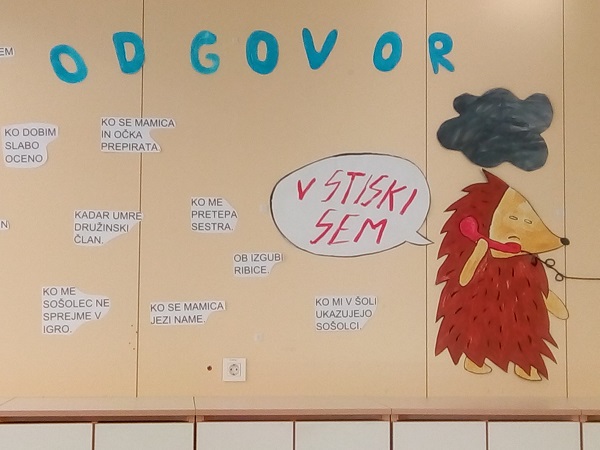 ODGOVOR
EM
KO DOBIM
SLABO
OCENO
KO SE MAMICA
IN OČKA
PREPIRATA
V STISKI
SEM
N
KADAR UMRE
DRUŽINSKI
ČLAN.
KO ME
PRETEPA
SESTRA.
OB IZGUBI
RIBICE.
KO ME
SOŠOLEC NE
SPREJME V
IGRO.
KO SE MAMICA
JEZI NAME.
KO MI V ŠOLI
UKAZUJEJO
SOŠOLCI.